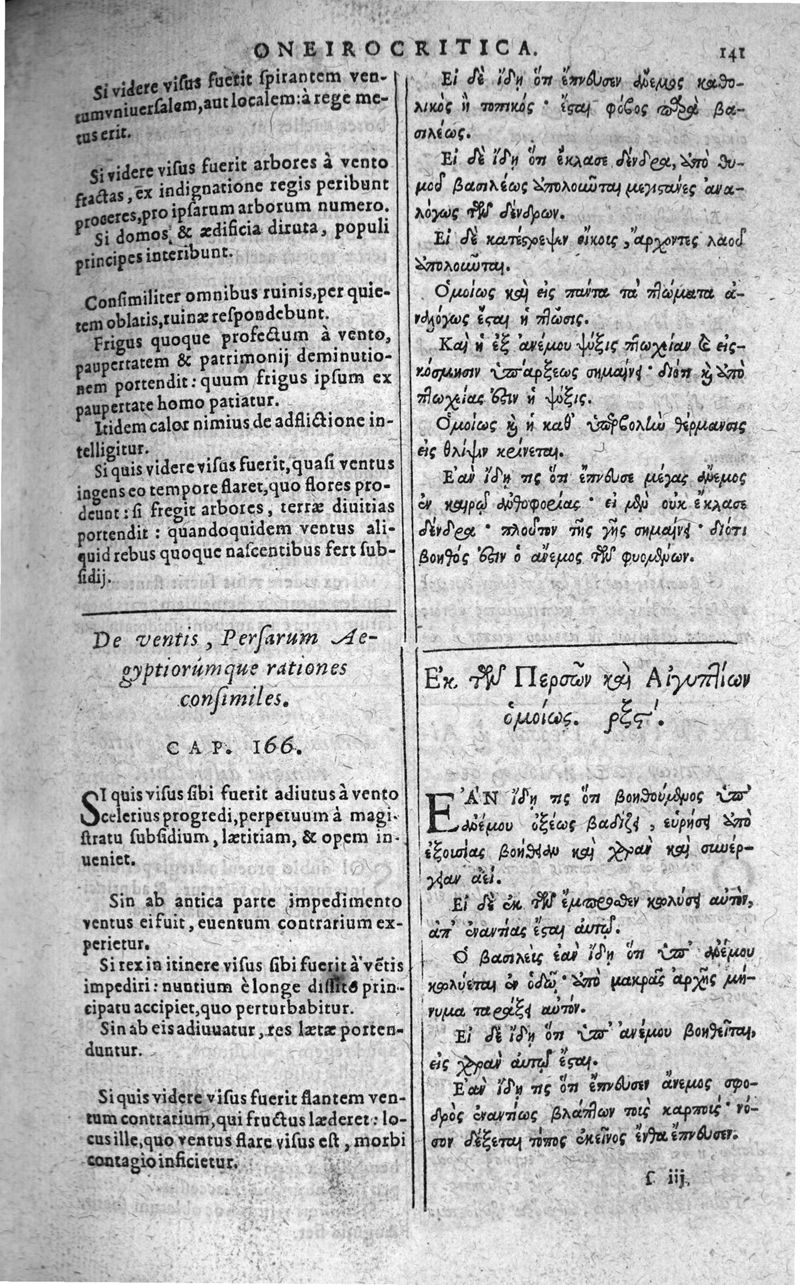 ONEIROCRITICA. 141
Si videre visus fuerit spirantem ven-
tum vniuersalem, aut localem: à rege me-
tus erit.
Si videre visus fuerit arbores à vento
fractas, ex indignatione regis peribunt
proceres, pro ipsarum arborum numero.
Si domos, & ædificia diruta, populi
principes interibunt.
Consimiliter omnibus ruinis, per quie-
tem oblatis, ruinæ respondebunt.
Frigus quoque profectum à vento,
paupertatem & patrimonij deminutio-
nem portendit: quum frigus ipsum ex
paupertate homo patiatur.
Itidem calor nimius de adflictione in-
telligitur.
Si quis videre visus fuerit, quasi ventus
ingens eo tempore flaret, quo flores pro-
deunt: si fregit arbores, terræ diuitias
portendit: quandoquidem ventus ali-
quid rebus quoque nascentibus fert sub-
sidij.
De ventis, Persarum Ae-
gyptiorúmque rationes
consimiles.
CAP. 166.
SI quis visus sibi fuerit adiutus à vento
celerius progredi, perpetuum à magi-
stratu subsidium, lætitiam, & opem in-
ueniet.
Sin ab antica parte impedimento
ventus ei fuit, euentum contrarium ex-
perietur.
Si rex in itinere visus sibi fuerit à vētis
impediri: nuntium è longe dissito prin-
cipatu accipiet, quo perturbabitur.
Sin ab eis adiuuatur, res lætæ porten-
duntur.
Si quis videre visus fuerit flantem ven-
tum contrarium, qui fructus læderet: lo-
cus ille, quo ventus flare visus est, morbi
contagio inficietur.
Εἰ δὲ ἴδῃ ὅτι ἔπνευσεν ἄνεμος καθο-
λικὸς ἢ τοπικός· ἔσται φόβος παρὰ βα-
σιλέως.
Εἰ δὲ ἴδῃ ὅτι ἔκλασε δένδρα, ἀπὸ θυ-
μοῦ βασιλέως ἀπολοῦνται μεγιστᾶνες ἀνα-
λόγως τῶν δένδρων.
Εἰ δὲ κατέστρεψεν οἴκοις, ἄρχοντες λαοῦ
ἀπολοῦνται.
Ὁμοίως καὶ εἰς πάντα τὰ πτώματα ἀ-
ναλόγως ἔσται ἡ πτῶσις.
Καὶ ἡ ἐξ ἀνέμου ψύξις πτωχείαν καὶ εἰς-
κόσμησιν ὑπάρξεως σημαίνει· διότι καὶ ἀπὸ
πτωχείας ἐστὶν ἡ ψύξις.
Ὁμοίως καὶ ἡ καθ' ὑπερβολὴν θέρμανσις
εἰς θλίψιν κρίνεται.
Ἐὰν ἴδῃ τις ὅτι ἔπνευσε μέγας ἄνεμος
ἐν καιρῷ ἀνθοφορίας· εἰ μὲν οὐκ ἔκλασε
δένδρα· πλοῦτον τῆς γῆς σημαίνει· διότι
βοηθός ἐστιν ὁ ἄνεμος τῶν φυομένων.
Ἐκ τῶν Περσῶν καὶ Αἰγυπτίων
ὁμοίως. ρξϛʹ.
ΕΑΝ ἴδῃ τις ὅτι βοηθούμενος ὑπ'
ἀνέμου ὀξέως βαδίζει, εὑρήσει ἀπὸ
ἐξουσίας βοήθειαν καὶ χαρὰν καὶ συνέρ-
γειαν ἀεί.
Εἰ δὲ ἐκ τῶν ἔμπροσθεν κωλύσει αὐτὸν,
ἀπ' ἐναντίας ἔσται αὐτῷ.
Ὁ βασιλεὺς ἐὰν ἴδῃ ὅτι ὑπ' ἀνέμου
κωλύεται ἐν ὁδῷ· ἀπὸ μακρᾶς ἀρχῆς μή-
νυμα ταράξει αὐτόν.
Εἰ δὲ ἴδῃ ὅτι ὑπ' ἀνέμου βοηθεῖται,
εἰς χαρὰν αὐτῷ ἔσται.
Ἐὰν ἴδῃ τις ὅτι ἔπνευσεν ἄνεμος σφο-
δρὸς ἐναντίως βλάπτων τοῖς καρποῖς· νό-
σον δέξεται τόπος ἐκεῖνος ἔνθα ἔπνευσεν.
ſ iij.